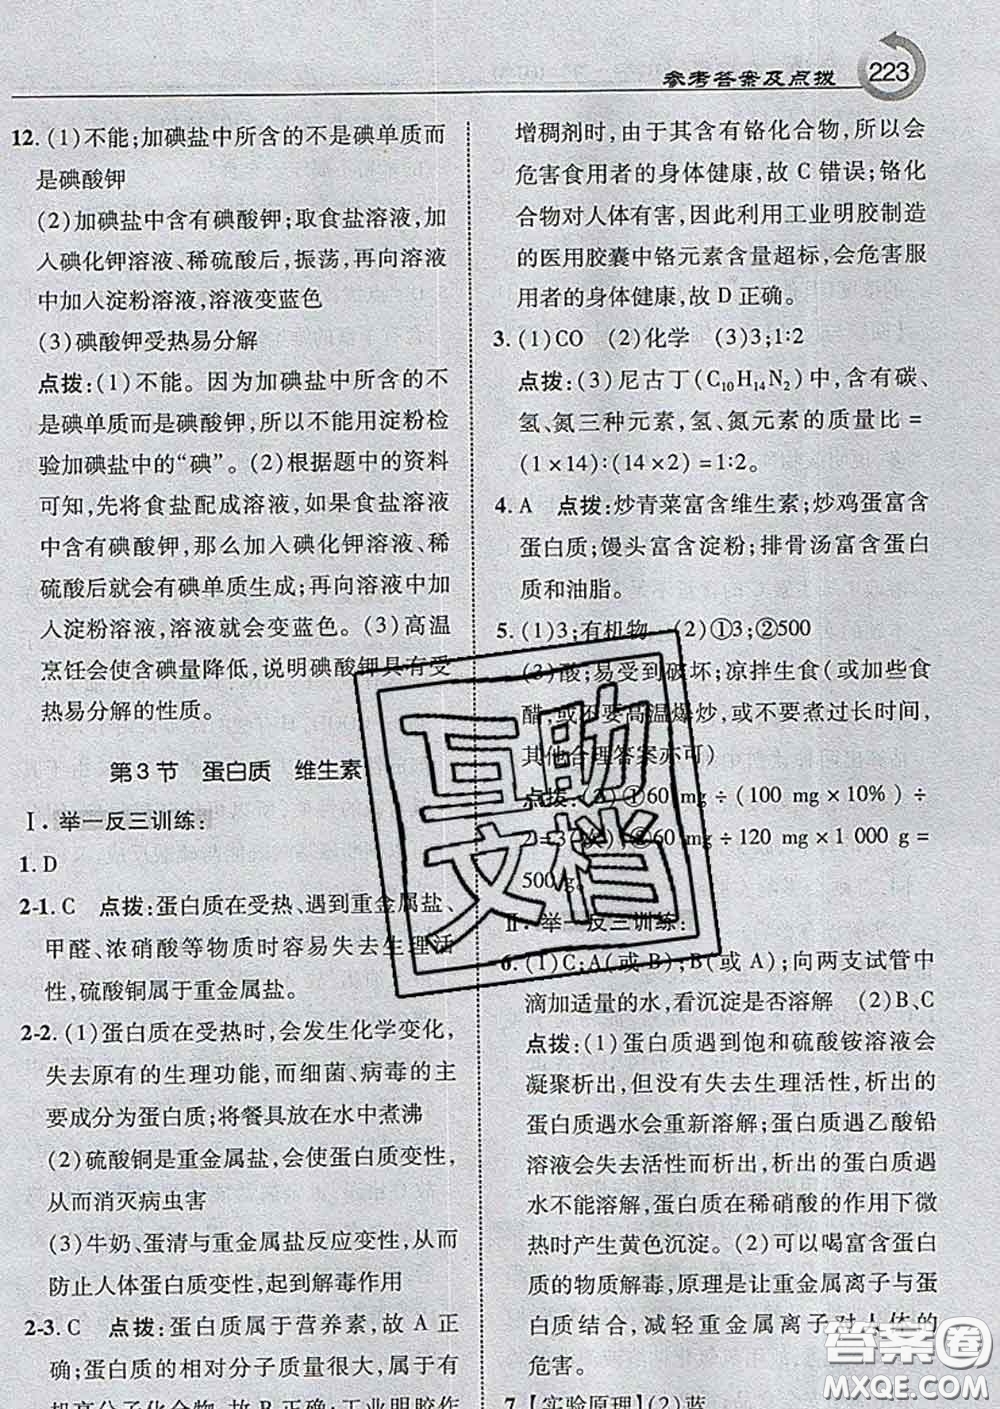 参考答案及点拨
223
12. (1)不能;加碘盐中所含的不是碘单质而
是碘酸钾
(2)加碘盐中含有碘酸钾;取食盐溶液,加
入碘化钾溶液、稀硫酸后,振荡,再向溶液
中加入淀粉溶液,溶液变蓝色
(3)碘酸钾受热易分解
点拨:(1)不能。因为加碘盐中所含的不
是碘单质而是碘酸钾,所以不能用淀粉检
验加碘盐中的“碘”。(2)根据题中的资料
可知,先将食盐配成溶液,如果食盐溶液
中含有碘酸钾,那么加入碘化钾溶液、稀
硫酸后就会有碘单质生成;再向溶液中加
入淀粉溶液,溶液就会变蓝色。(3)高温
烹饪会使含碘量降低,说明碘酸钾具有受
热易分解的性质。
第3节 蛋白质 维生素
Ⅰ·举一反三训练:
1. D
2-1. C 点拨:蛋白质在受热、遇到重金属盐、
甲醛、浓硝酸等物质时容易失去生理活
性,硫酸铜属于重金属盐。
2-2. (1)蛋白质在受热时,会发生化学变化,
失去原有的生理功能,而细菌、病毒的主
要成分为蛋白质;将餐具放在水中煮沸
(2)硫酸铜是重金属盐,会使蛋白质变性,
从而消灭病虫害
(3)牛奶、蛋清与重金属盐反应变性,从而
防止人体蛋白质变性,起到解毒作用
2-3. C 点拨:蛋白质属于营养素,故 A 正
确;蛋白质的相对分子质量很大,属于有
机高分子化合物,故 B 正确;工业明胶作
增稠剂时,由于其含有铬化合物,所以会
危害食用者的身体健康,故 C 错误;铬化
合物对人体有害,因此利用工业明胶制造
的医用胶囊中铬元素含量超标,会危害服
用者的身体健康,故 D 正确。
3. (1)CO (2)化学 (3)3;1∶2
点拨:(3)尼古丁(C₁₀H₁₄N₂)中,含有碳、
氢、氮三种元素,氢、氮元素的质量比=
(1×14)∶(14×2)=1∶2。
4. A 点拨:炒青菜富含维生素;炒鸡蛋富含
蛋白质;馒头富含淀粉;排骨汤富含蛋白
质和油脂。
5. (1)3;有机物 (2)①3;②500
(3)酸;易受到破坏;凉拌生食(或加些食
醋,或不要高温爆炒,或不要煮过长时间,
其他合理答案亦可)
点拨:(2)①60 mg÷(100 mg×10%)÷
2=3(片);②60 mg÷120 mg×1 000 g=
500 g。
Ⅱ·举一反三训练:
6. (1)C;A(或 B);B(或 A);向两支试管中
滴加适量的水,看沉淀是否溶解 (2)B、C
点拨:(1)蛋白质遇到饱和硫酸铵溶液会
凝聚析出,但没有失去生理活性,析出的
蛋白质遇水会重新溶解;蛋白质遇乙酸铅
溶液会失去活性而析出,析出的蛋白质遇
水不能溶解,蛋白质在稀硝酸的作用下微
热时产生黄色沉淀。(2)可以喝富含蛋白
质的物质解毒,原理是让重金属离子与蛋
白质结合,减轻重金属离子对人体的
危害。
7. 【实验原理】(2)蓝
互助
文档
答案圈
MXQE.COM